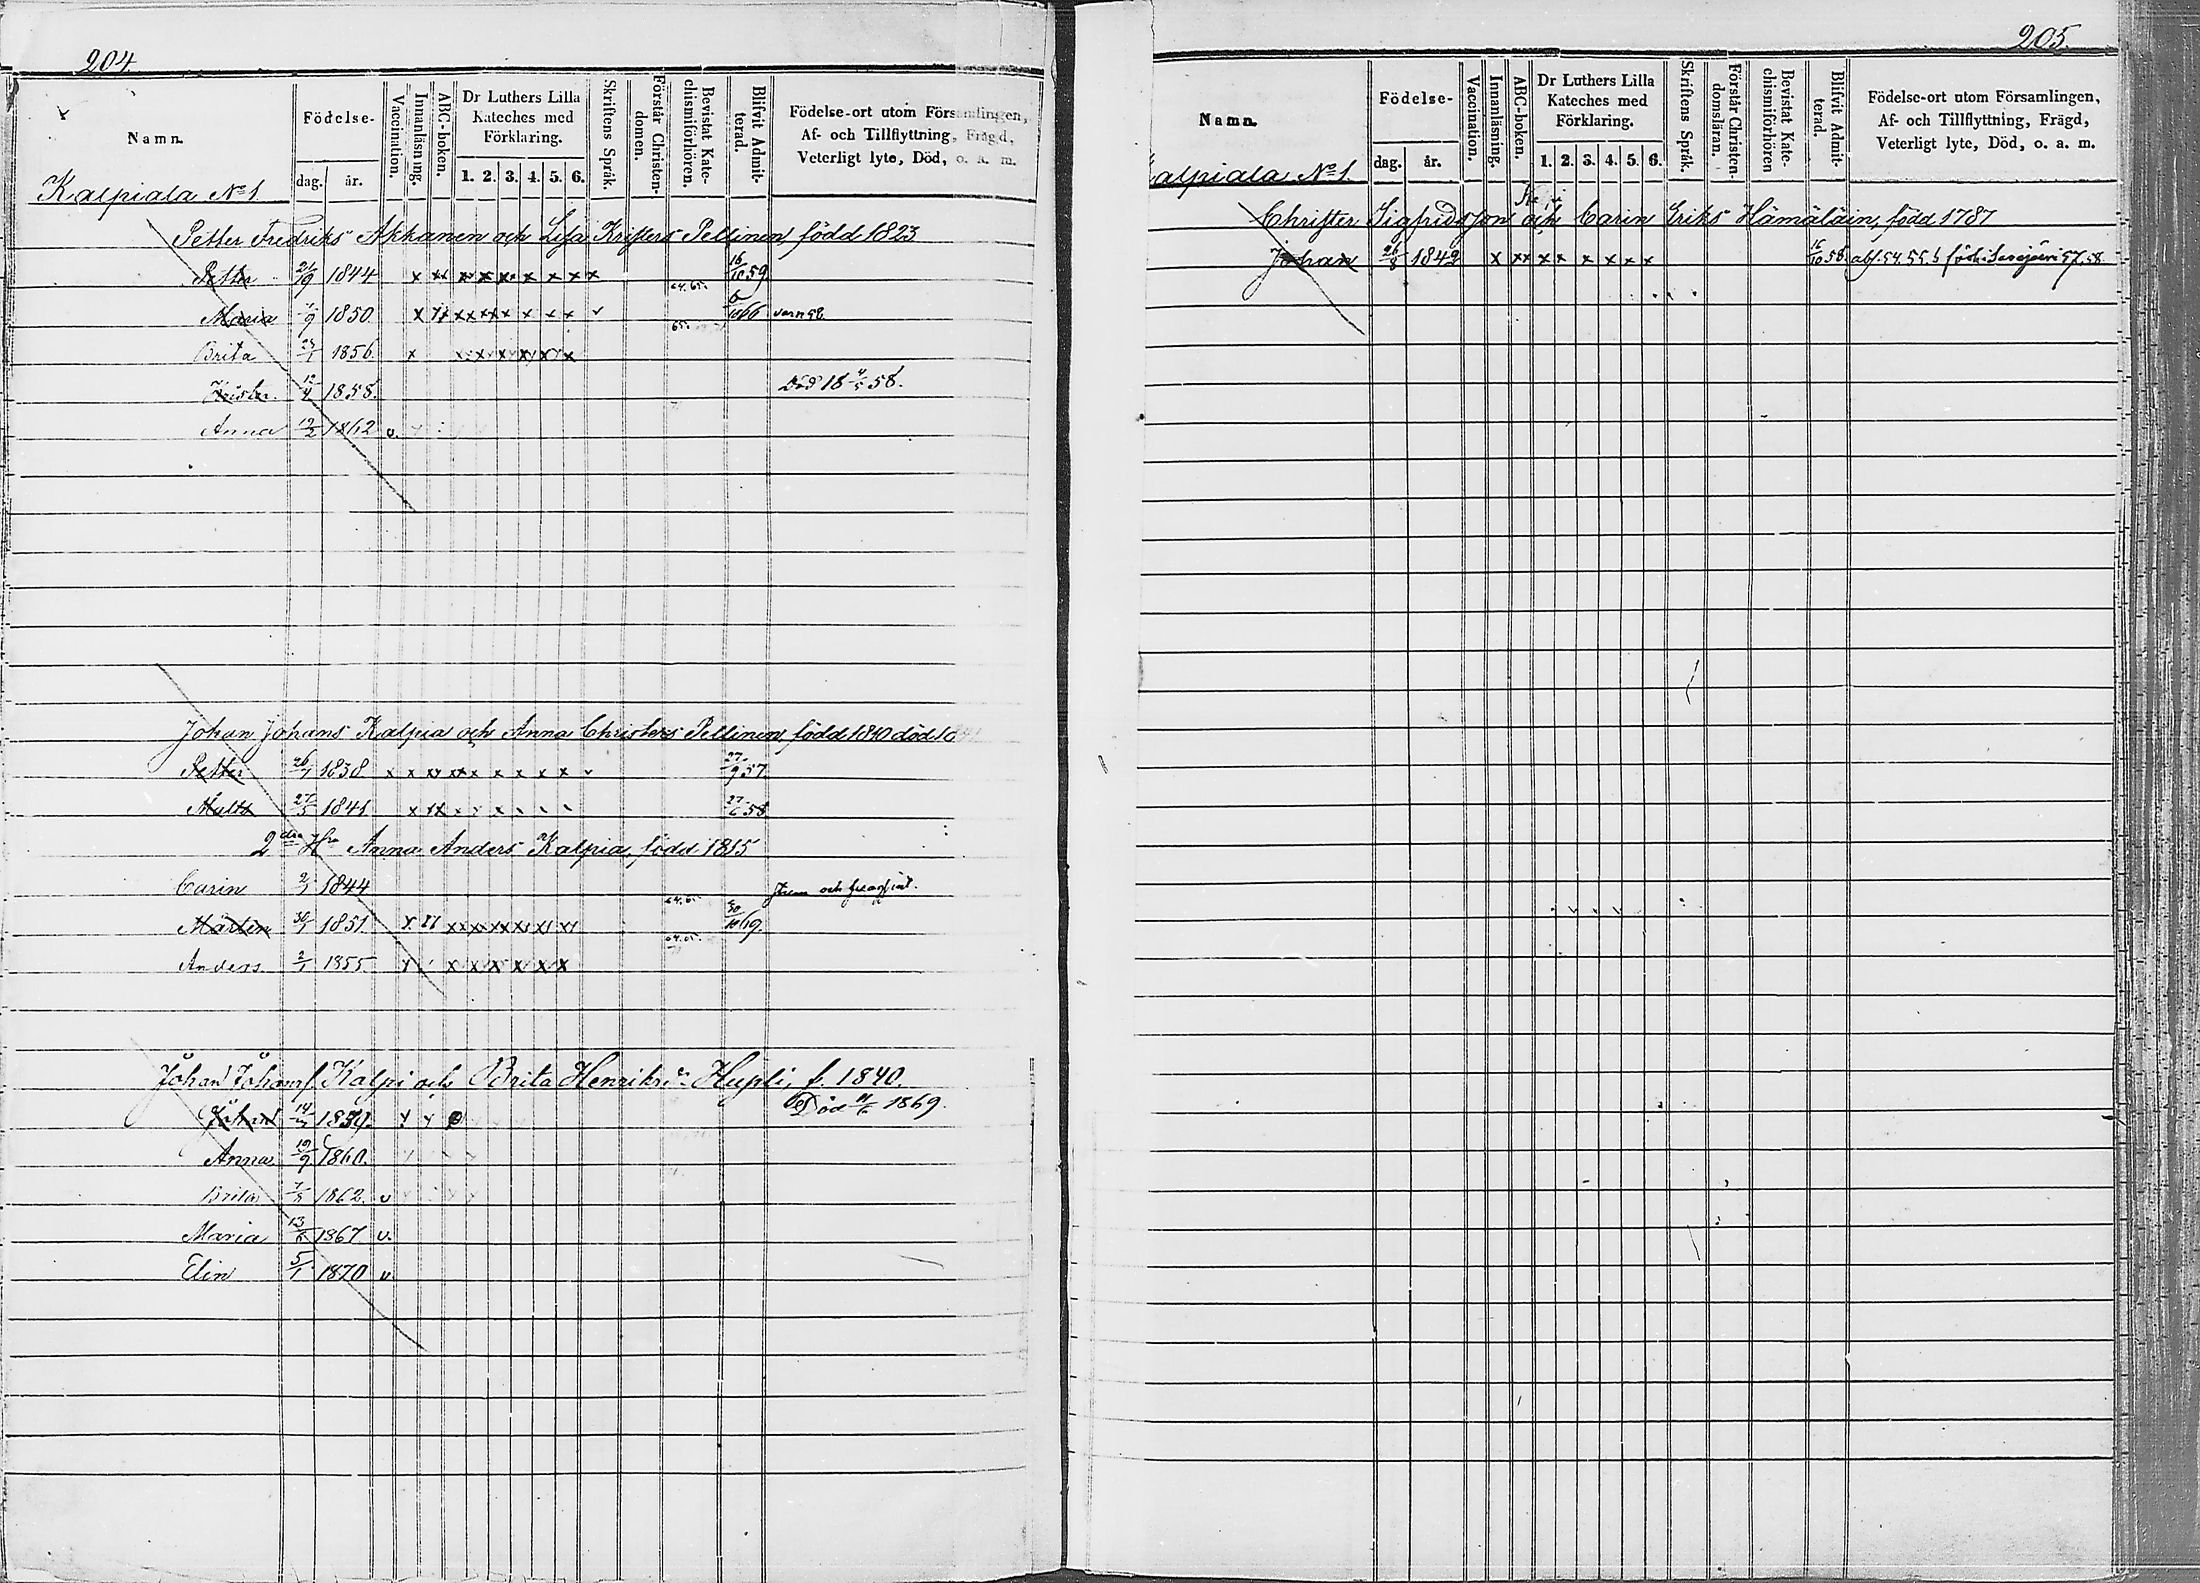 204.
Namn. Födelse- dag. år. Vaccination. Innanläsning. ABC-boken. Dr Luthers Lilla Kateches med Förklaring. 1. 2. 3. 4. 5. 6. Skriftens Språk. Förstår Christendomen. Bevistat Katechismiförhören. Blifvit Admitterad. Födelse-ort utom Församlingen, Af- och Tillflyttning, Frägd, Veterligt lyte, Död, o. a. m.
Kalpiala No 1.
Petter Fredriks Akkanen och Lisa Kristers Pellinen, född 1823
Petter 21/9 1844 x xx xx x x x x x x 16/10 59
64. 65.
Maria 1/9 1850. x xx x x x x x 66 vacn 58.
65.
Brita 1856. x x x x x x x
Krister 12/4 1858. Död 18 4/5 58.
Anna 19/2 1862 v.
Johan Johans Kalpia och Anna Christers Pellinen, född 1810 död
Petter 26/1 1838 x x xx xx x x x x x 27/9 57
Matts 27/5 1841 x xx x 27/6 58
2dra Hu Anna Anders Kalpia, född 1815
Carin 2/1 1844
64. 65.
Mårten 30/1 1851. x xx xx xx xx xx xx 30/10 69.
Anders 2/1 1855 x x x x x x
Johan Johansf Kalpi och Brita Henriks dr Hupli, f. 1840.
Johan 1859. Död 11/6 1869.
Anna 19/9 1860.
Brita 7/8 1862. v
Maria 13/6 1867 v.
Elin 5/1 1870 v.
205.
Namn. Födelse- dag. år. Vaccination. Innanläsning. ABC-boken. Dr Luthers Lilla Kateches med Förklaring. 1. 2. 3. 4. 5. 6. Skriftens Språk. Förstår Christendomsläran. Bevistat Katechismiförhören Blifvit Admitterad. Födelse-ort utom Församlingen, Af- och Tillflyttning, Frägd, Veterligt lyte, Död, o. a. m.
alpiala No 1.
Christer Sigfridsson och Carin Eriks Hämäläin, född 1787
Johan 26/8 1842 x xx x x x x x x 16/10 58